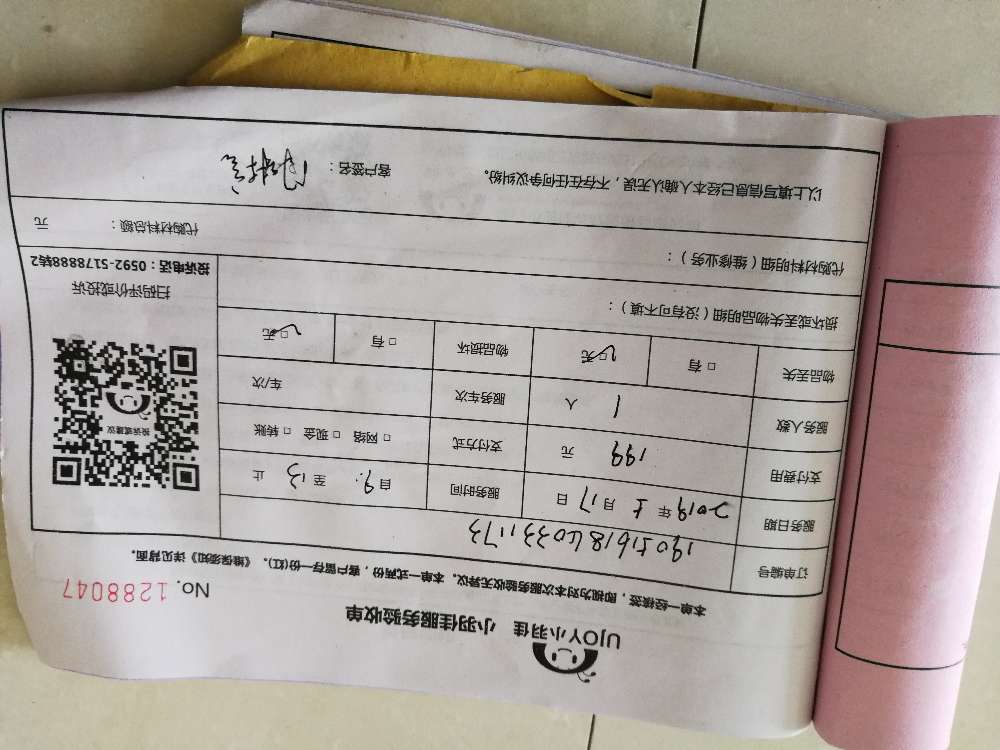 UJOY小羽佳 小羽佳服务验收单
No. 1288047
本单一经核签，即视为对本次服务验收无异议。本单一式两份，客户留存一份(红)。《维保须知》详见背面。
订单编号
服务日期 2019年 5月 17日 服务时间 自 9. 至 13 止
支付费用 199 元 支付方式 □ 网络 □ 现金 □ 转账
服务人数 1 人 服务车次 车/次
物品丢失 □ 有 ☑ 无 物品损坏 □ 有 ☑ 无
损坏或丢失物品明细（没有可不填）：
投诉或建议
扫码评价或投诉
投诉电话：0592-5178888转2
代购材料明细（维修业务）：
代购材料总额： 元
以上填写信息已经本人确认无误，不存在任何争议纠纷。 客户签名：